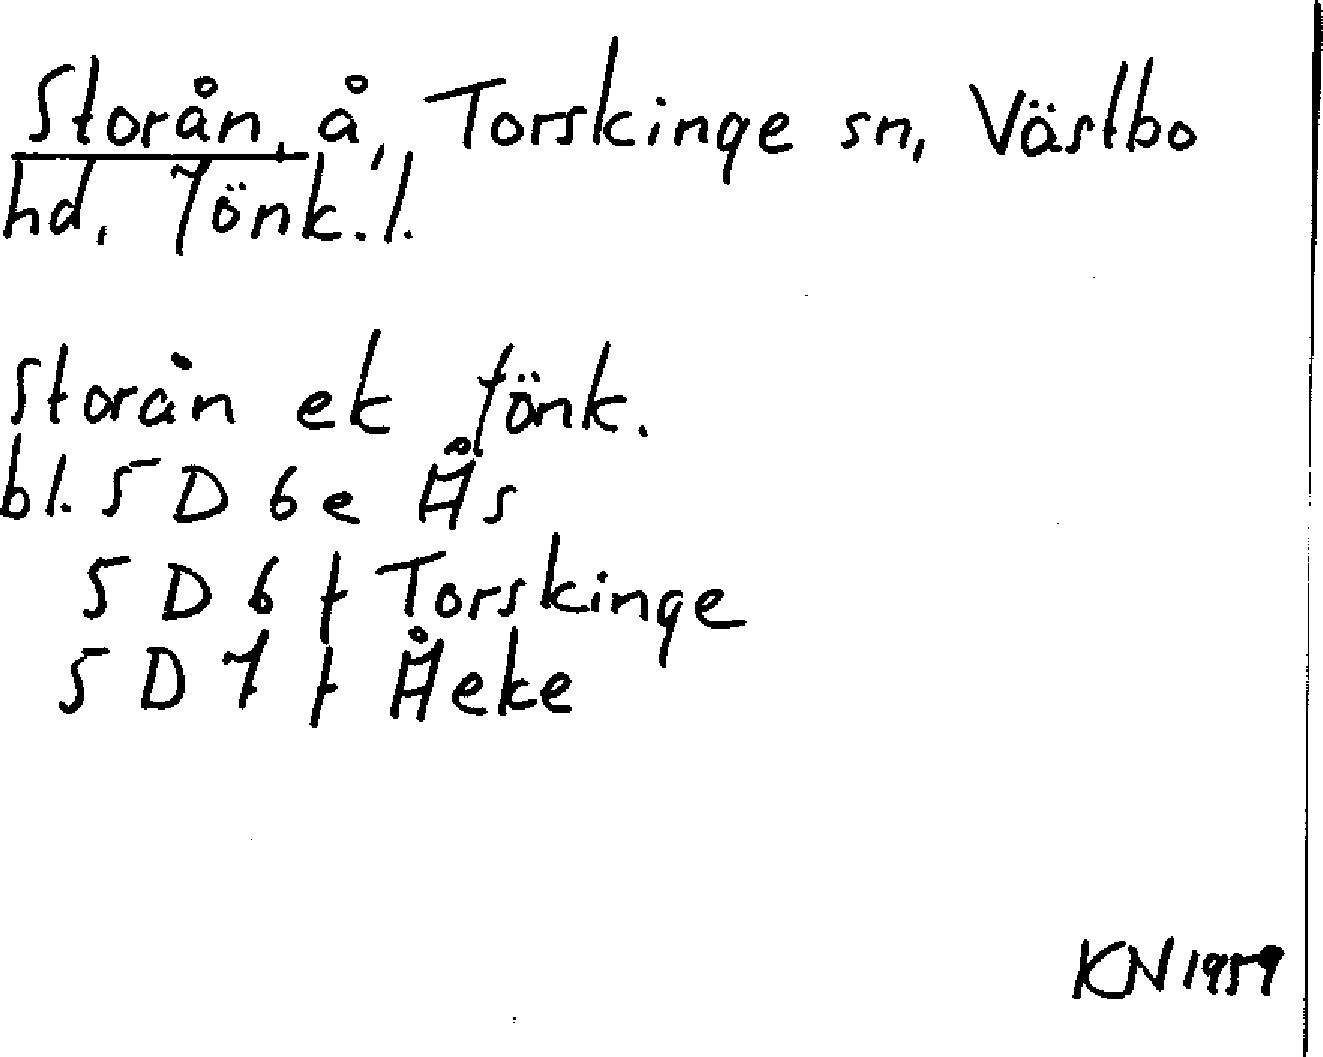 Storån, å, Torskinge sn, Västbo
hd, Jönk. l.
Storån ek Jönk.
bl. 5 D 6 e Ås
5 D 6 f Torskinge
5 D 7 f Åeke
KN 1959